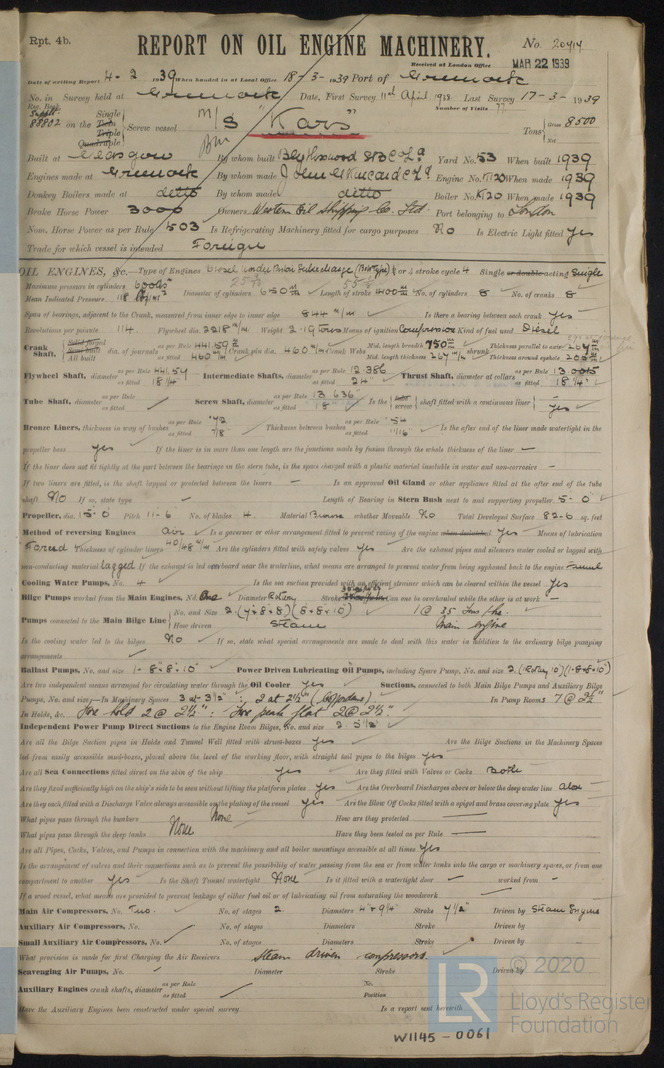 Rpt. 4b.
REPORT ON OIL ENGINE MACHINERY.
No. 20414
Received at London Office MAR 22 1939
Date of writing Report 4-2 1939 When handed in at Local Office 18-3-1939 Port of Greenock
No. in Survey held at Greenock Date, First Survey 11th April 1938 Last Survey 17-3-1939
Reg. Book. Number of Visits
88802 on the Single Twin Triple Quadruple Screw vessel M/S "Kars" Tons Gross 8500 Net
Built at Glasgow By whom built Blythswood SB Co Ld Yard No. 53 When built 1939
Engines made at Greenock By whom made J. G. Kincaid & Co Ld Engine No. K120 When made 1939
Donkey Boilers made at ditto By whom made ditto Boiler No. K120 When made 1939
Brake Horse Power 3000 Owners Western Oil Shipping Co. Ltd. Port belonging to London
Nom. Horse Power as per Rule 503 Is Refrigerating Machinery fitted for cargo purposes No Is Electric Light fitted Yes
Trade for which vessel is intended Foreign
OIL ENGINES, &c.—Type of Engines 2 or 4 stroke cycle 4 Single or double acting Single
Maximum pressure in cylinders 600 Diameter of cylinders 650 Length of stroke 1400 No. of cylinders 8 No. of cranks 8
Mean Indicated Pressure 118
Span of bearings, adjacent to the Crank, measured from inner edge to inner edge 844 m/m Is there a bearing between each crank yes
Revolutions per minute 114 Flywheel dia. 2218 m/m Weight 2.19 tons Means of ignition Compression Kind of fuel used Diesel
Crank Shaft, Solid forged Semi built All built dia. of journals as per Rule 441.59 as fitted 460 m/m Crank pin dia. 460 m/m Crank Webs Mid. length breadth 750 Mid. length thickness 267 m/m shrunk Thickness parallel to axis 267 Thickness around eyehole 203
Flywheel Shaft, diameter as per Rule 441.59 as fitted 18 1/4" Intermediate Shafts, diameter as per Rule 12.386 as fitted Thrust Shaft, diameter at collars as per Rule 13.0015 as fitted 18 1/4"
Tube Shaft, diameter as per Rule as fitted Screw Shaft, diameter as per Rule 13.636 as fitted Is the tube screw shaft fitted with a continuous liner yes
Bronze Liners, thickness in way of bushes as per Rule .72 as fitted 7/8 Thickness between bushes as per Rule .54 as fitted 11/16 Is the after end of the liner made watertight in the
propeller boss yes If the liner is in more than one length are the junctions made by fusion through the whole thickness of the liner —
If the liner does not fit tightly at the part between the bearings in the stern tube, is the space charged with a plastic material insoluble in water and non-corrosive —
If two liners are fitted, is the shaft lapped or protected between the liners — Is an approved Oil Gland or other appliance fitted at the after end of the tube
shaft No If so, state type — Length of Bearing in Stern Bush next to and supporting propeller 5-0
Propeller, dia. 15-0 Pitch 11-6 No. of blades 4 Material Bronze whether Moveable No Total Developed Surface 82.6 sq. feet
Method of reversing Engines air Is a governor or other arrangement fitted to prevent racing of the engine when declutched Yes Means of lubrication
Forced Thickness of cylinder liners 40/48 m/m Are the cylinders fitted with safety valves yes Are the exhaust pipes and silencers water cooled or lagged with
non-conducting material lagged If the exhaust is led overboard near the waterline, what means are arranged to prevent water from being syphoned back to the engine Funnel
Cooling Water Pumps, No. 4 Is the sea suction provided with an efficient strainer which can be cleared within the vessel yes
Bilge Pumps worked from the Main Engines, No. One Diameter Rotary Stroke Can one be overhauled while the other is at work —
Pumps connected to the Main Bilge Line No. and Size 2. (7×8×8) (8×8×10) 1 @ 35 Tons/hr.
How driven Steam Main engine
Is the cooling water led to the bilges No If so, state what special arrangements are made to deal with this water in addition to the ordinary bilge pumping
arrangements —
Ballast Pumps, No. and size 1-8"×8"×10" Power Driven Lubricating Oil Pumps, including Spare Pump, No. and size 2 (1 Rotary 10) (1-8×8×10)
Are two independent means arranged for circulating water through the Oil Cooler yes Suctions, connected to both Main Bilge Pumps and Auxiliary Bilge
Pumps, No. and size:—In Machinery Spaces 3 at 3 1/2": 2 at 2 1/2" (Cofferdams) In Pump Rooms 7 @ 2 1/2"
In Holds, &c. Fore hold 2 @ 2 1/2": Fore peak flat 2 @ 2 1/2".
Independent Power Pump Direct Suctions to the Engine Room Bilges, No. and size 2-5 1/2
Are all the Bilge Suction pipes in Holds and Tunnel Well fitted with strum-boxes yes Are the Bilge Suctions in the Machinery Spaces
led from easily accessible mud-boxes, placed above the level of the working floor, with straight tail pipes to the bilges yes
Are all Sea Connections fitted direct on the skin of the ship yes Are they fitted with Valves or Cocks both
Are they fixed sufficiently high on the ship's side to be seen without lifting the platform plates yes Are the Overboard Discharges above or below the deep water line above
Are they each fitted with a Discharge Valve always accessible on the plating of the vessel yes Are the Blow Off Cocks fitted with a spigot and brass covering plate yes
What pipes pass through the bunkers None How are they protected —
What pipes pass through the deep tanks None Have they been tested as per Rule —
Are all Pipes, Cocks, Valves, and Pumps in connection with the machinery and all boiler mountings accessible at all times yes
Is the arrangement of valves and their connections such as to prevent the possibility of water passing from the sea or from water tanks into the cargo or machinery spaces, or from one
compartment to another yes Is the Shaft Tunnel watertight None Is it fitted with a watertight door — worked from —
If a wood vessel, what means are provided to prevent leakage of either fuel oil or of lubricating oil from saturating the woodwork —
Main Air Compressors, No. Two No. of stages 2 Diameters 4"×9 1/4" Stroke 7 1/2" Driven by Steam Engine
Auxiliary Air Compressors, No. No. of stages Diameters Stroke Driven by
Small Auxiliary Air Compressors, No. No. of stages Diameters Stroke Driven by
What provision is made for first Charging the Air Receivers Steam driven compressors.
Scavenging Air Pumps, No. Diameter Stroke Driven by
Auxiliary Engines crank shafts, diameter as per Rule as fitted No. Position
Have the Auxiliary Engines been constructed under special survey Is a report sent herewith
© 2020
LR
Lloyd's Register
Foundation
W1145-0061